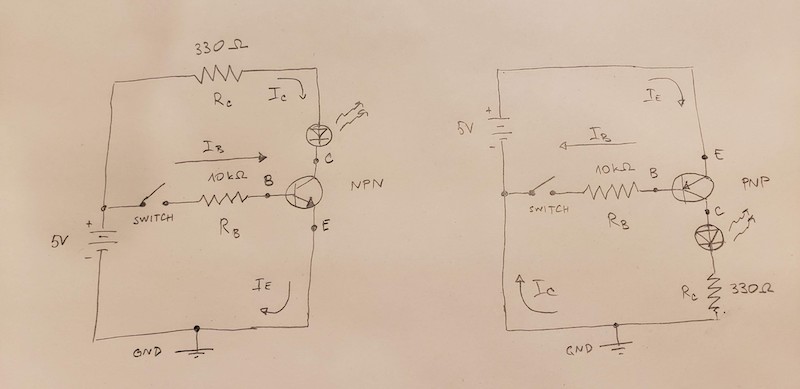 330Ω
Rc
Ic
IB
C
10kΩ
B
NPN
SWITCH
RB
E
+
5V
-
IE
GND
+
5V
-
IE
IB
E
10kΩ
B
PNP
SWITCH
RB
C
Rc
330Ω
Ic
GND